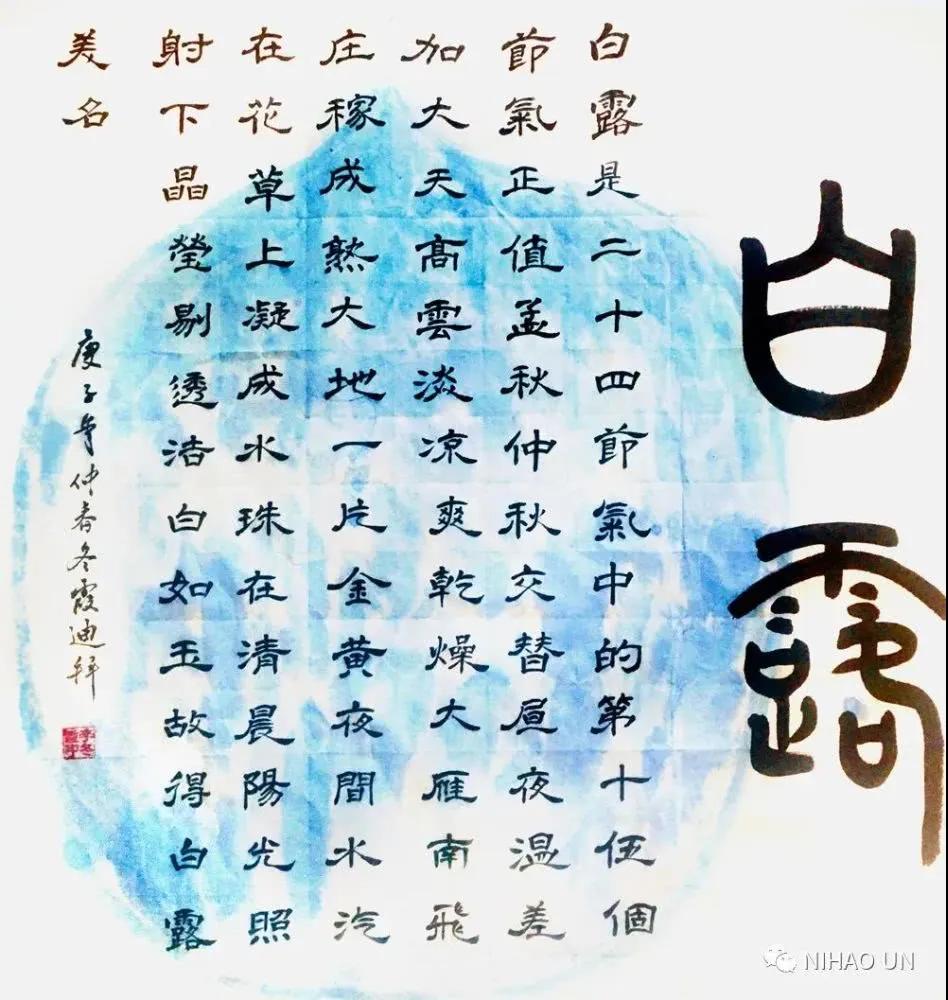 白露
白露是二十四節氣中的第十伍個
節氣正值孟秋仲秋交替昼夜温差
加大天高雲淡凉爽乾燥大雁南飛
庄稼成熟大地一片金黄夜間水汽
在花草上凝成水珠在清晨陽光照
射下晶瑩剔透洁白如玉故得白露
美名
庚子年仲春冬霞迪拜
NIHAO UN